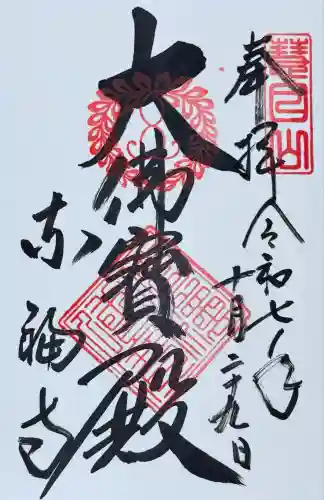 奉拝
令和七年
十月二十九日
大佛寳殿
东福寺
慧日山